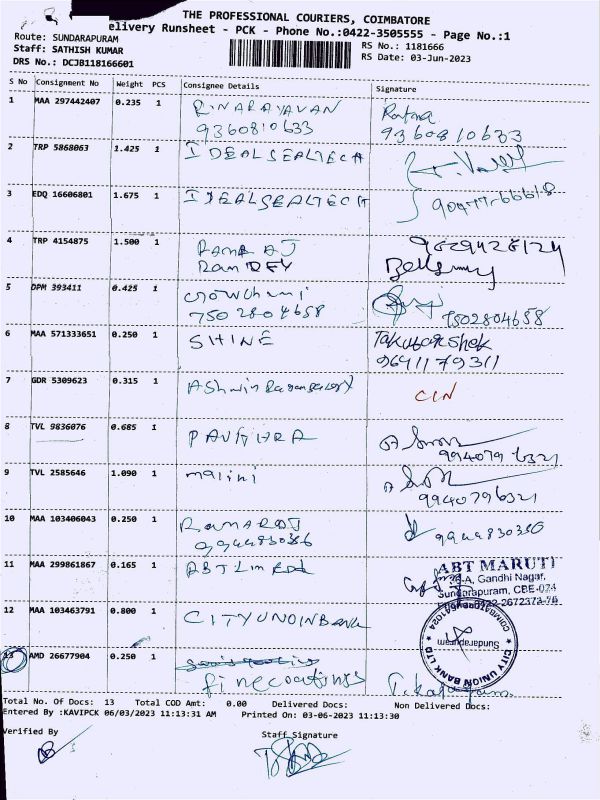 THE PROFESSIONAL COURIERS, COIMBATORE
elivery Runsheet - PCK - Phone No.:0422-3505555 - Page No.:1
Route: SUNDARAPURAM
RS No.: 1181666
Staff: SATHISH KUMAR
RS Date: 03-Jun-2023
DRS No.: DCJB118166601
S No Consignment No Weight PCS Consignee Details Signature
1 MAA 297442407 0.235 1 R.NARAYAVAN
9360810633 9360810633
2 TRP 5868063 1.425 1 IDEALSEALTECH
3 EDQ 16606801 1.675 1 IDEALSEALTECH
4 TRP 4154875 1.500 1
5 DPM 393411 0.425 1
7502804658 7502804658
6 MAA 571333651 0.250 1 SHINE
9641179311
7 GDR 5309623 0.315 1 Ashwin CIN
8 TVL 9836076 0.685 1 PAVITHRA
9940796321
9 TVL 2585646 1.090 1 malini
9940796321
10 MAA 103406043 0.250 1 RAMARAJ
11 MAA 299861867 0.165 1
ABT MARUTI
Gandhi Nagar,
Sundarapuram, CBE-024
12 MAA 103463791 0.800 1 CITYUNOINBANK
CITY UNION BANK LTD
COIMBATORE-641024
Sundarapuram
13 AMD 26677904 0.250 1
finecoatings
Total No. Of Docs: 13 Total COD Amt: 0.00 Delivered Docs: Non Delivered Docs:
Entered By :KAVIPCK 06/03/2023 11:13:31 AM Printed On :03-06-2023 11:13:30
Verified By Staff Signature